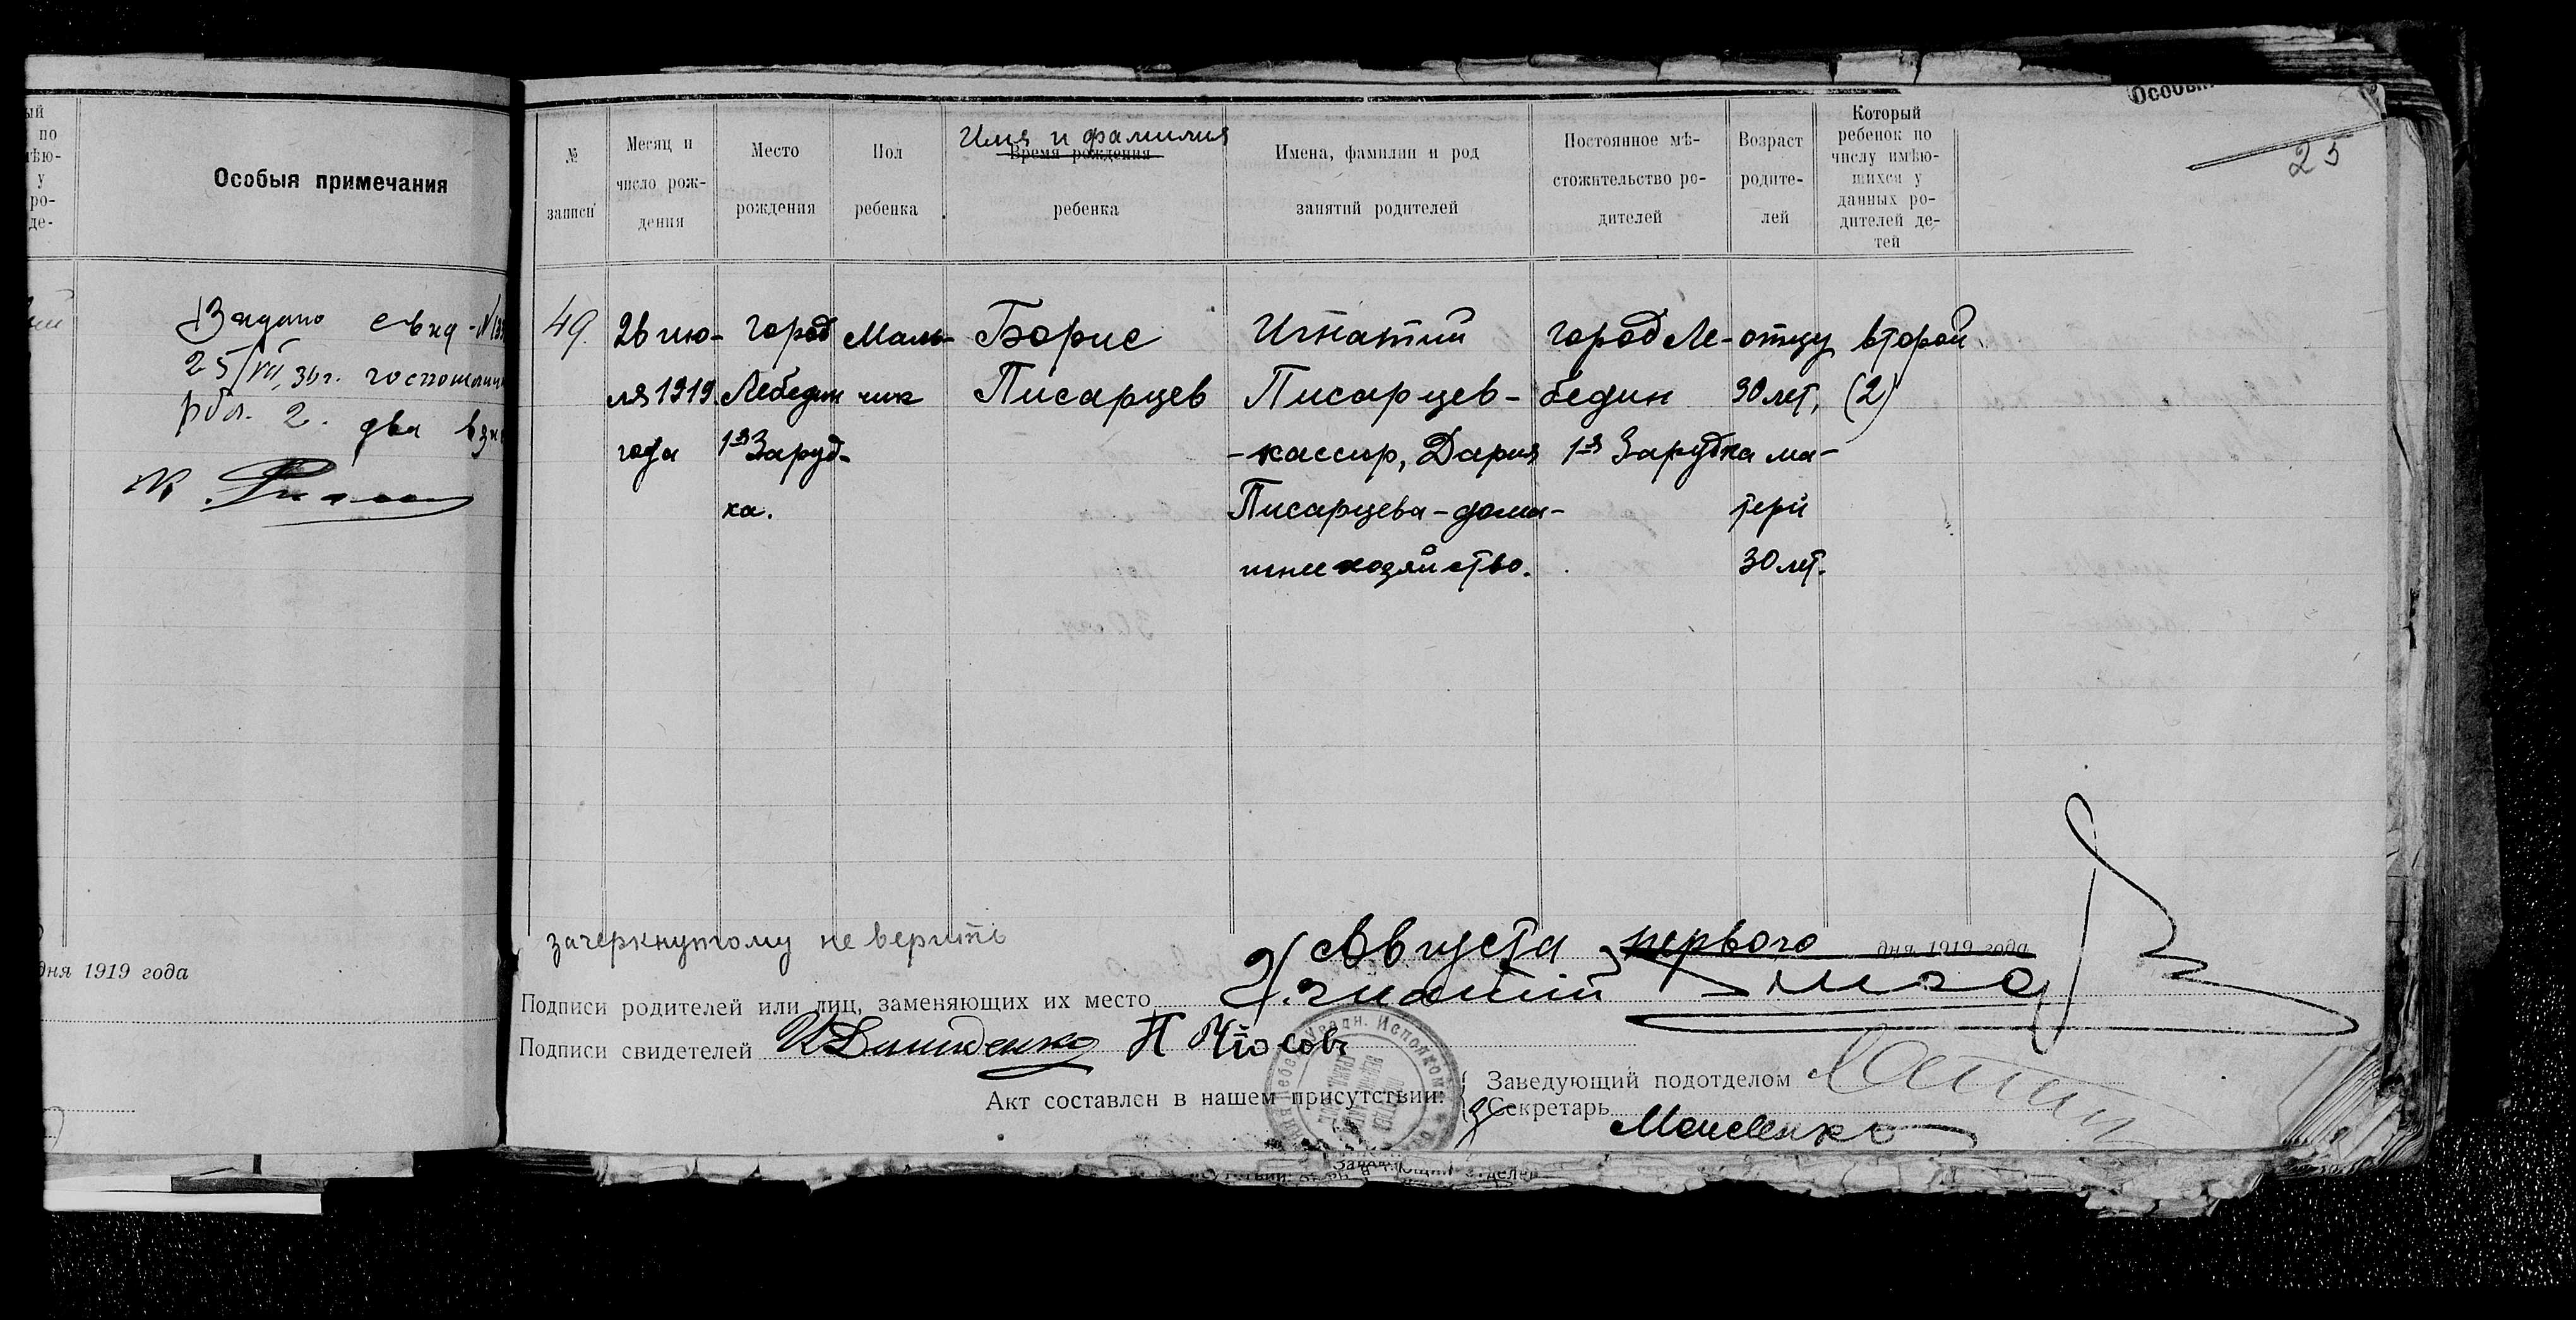 ый
по
мѣю-
у
ро-
де-
Особыя примечания
Видано свид - №
25/VII 36г.
рбл. 2. два
дня 1919 года
25
№
записи
Месяц и
число рож-
дения
Место
рождения
Пол
ребенка
Имя и фамилия
Время рождения
ребенка
Имена, фамилии и род
занятий родителей
Постоянное мѣ-
стожительство ро-
дителей
Возраст
родите-
лей
Который
ребенок по
числу имѣю-
шихся у
данных ро-
дителей де-
тей
49.
26 ию-
ля 1919
года
город
Лебедин
1я Заруд-
ка.
Маль-
чик
Борис
Писарцев
Игнатий
Писарцев -
- кассир, Дария
Писарцева - дома-
шнее хозяйство.
город Ле-
бедин
1я Зарудка
отцу
30 лет,
ма-
тери
30 лет.
второй
(2)
зачеркнутому не верить
Августа первого дня 1919 года
Подписи родителей или лиц, заменяющих их место Игнатий
Подписи свидетелей
Акт составлен в нашем присутствии:
Заведующий подотделом
Секретарь
Уездн. Исполком